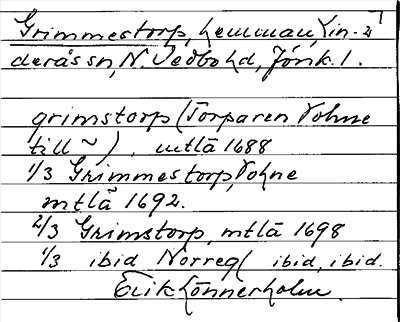 Grimmestorp, hemman, Lin-
deråssn, N. Vedbohd, Jönk. l.
grimstorp (Torparen Vohne
till ~), mtlä 1688
1/3 Grimmestorp, Vohne
mtlä 1692.
2/3 Grimstorp, mtlä 1698
1/3 ibid Norreg( ibid, ibid.
Erik Lönnerholm.